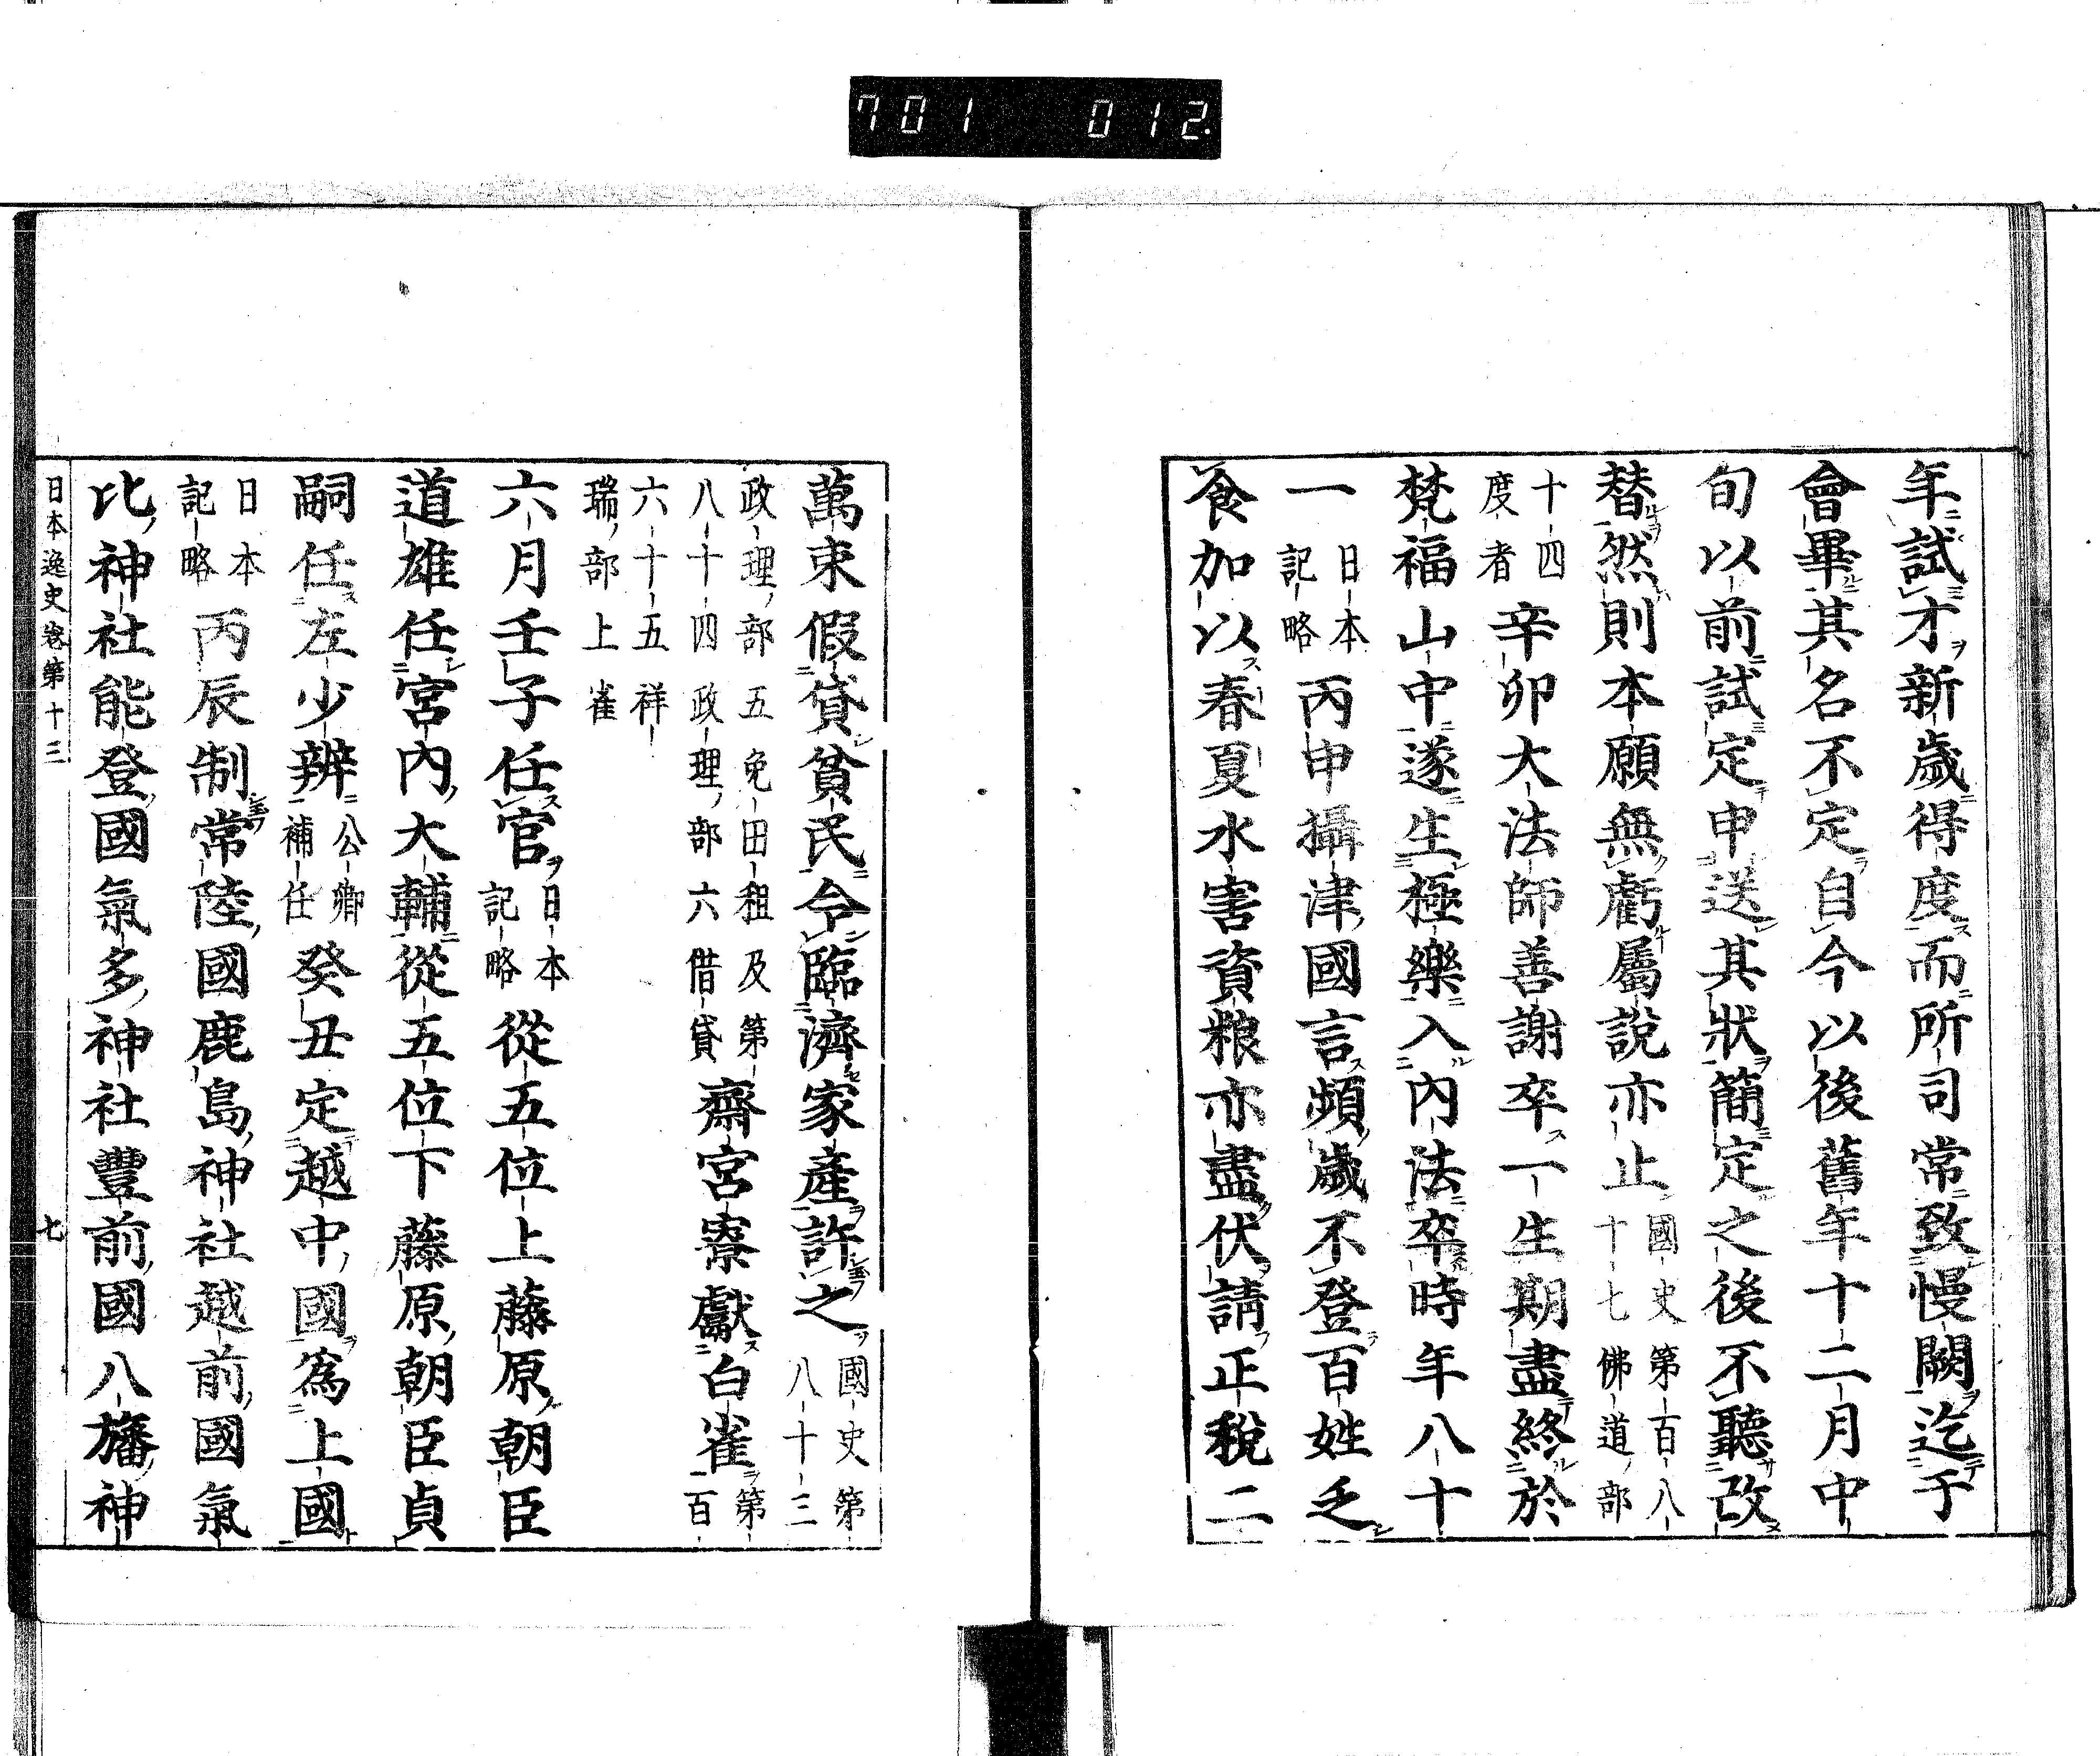 701 012.
年試才新歲得度而所司常致慢闕迄于
會畢其名不定自今以後舊年十二月中
旬以前試定申送其狀簡定之後不聽改
替然則本願無虧屬說亦止國史第百八
十七佛道部
十四
度者
辛卯大法師善謝卒一生期盡終於
梵福山中遂生極樂入內法卒時年八十
一日本
記略
丙申攝津國言頻歲不登百姓乏
食加以春夏水害資粮亦盡伏請正稅二
萬束假貸貧民令臨濟家產許之國史第
八十三
政理部五免田租及第
八十四政理部六借貸
齋宮寮獻白雀第
一百
六十五祥
瑞部上雀
六月壬子任官日本
記略
從五位上藤原朝臣
道雄任宮內大輔從五位下藤原朝臣貞
嗣任左少辨公卿
補任
癸丑定越中國為上國
日本
記略
丙辰制常陸國鹿島神社越前國氣
比神社能登國氣多神社豐前國八旛神
日本逸史卷第十三
七